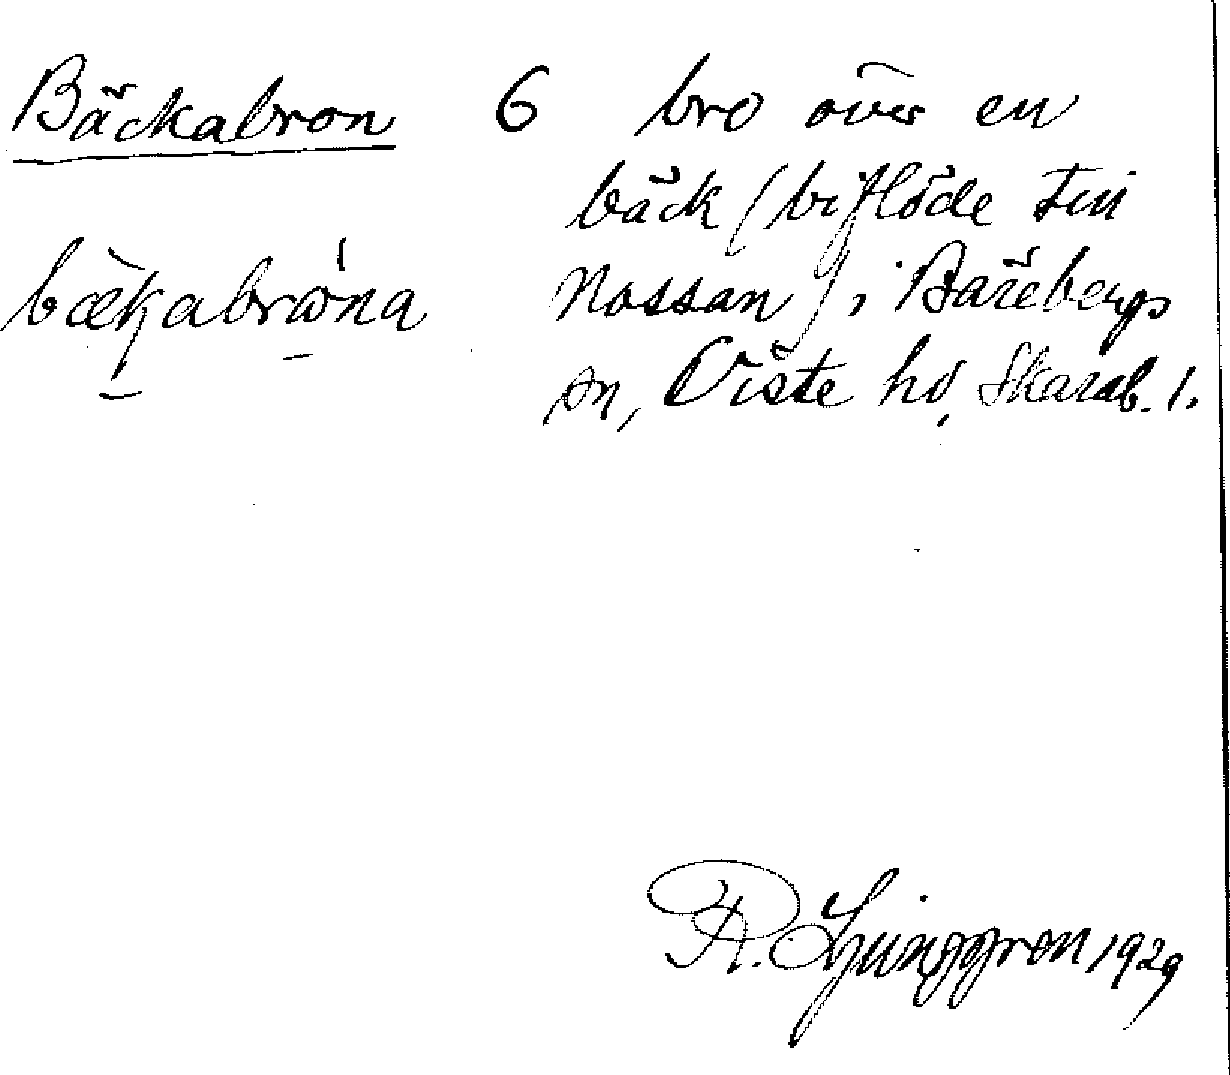 Bäckabron 6 bro över en
bäck (biflöde till
bækabrona Nossan), i Bärebergs
sn, Viste hd, Skarab. l.
R. Ljunggren 1929